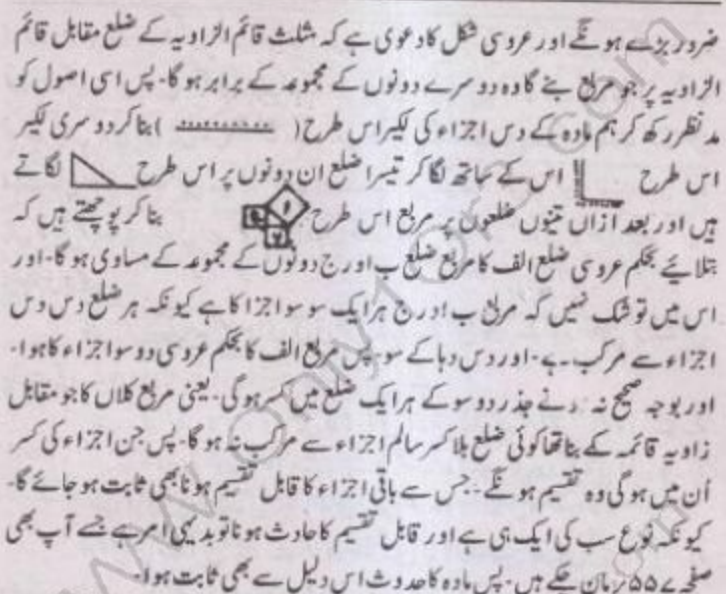 ضرور بڑے ہونگے اور عروسی شکل کا دعوی ہے کہ مثلث قائم الزاویہ کے ضلع مقابل قائم
الزاویہ پر جو مربع بنے گا وہ دوسرے دونوں کے مجموعہ کے برابر ہو گا۔ پس اسی اصول کو
مد نظر رکھ کر ہم مادہ کے دس اجزاء کی لکیر اس طرح ( .......... ) بنا کر دوسری لکیر
اس طرح اس کے ساتھ لگا کر تیسرا ضلع ان دونوں پر اس طرح لگاتے
ہیں اور بعد ازاں تینوں ضلعوں پر مربع اس طرح بنا کر پوچھتے ہیں کہ
بتلایئے بحکم عروسی ضلع الف کا مربع ضلع ب اور ج دونوں کے مجموعہ کے مساوی ہو گا۔ اور
اس میں تو شک نہیں کہ مربع ب اور ج ہر ایک سو سو اجزا کا ہے کیونکہ ہر ضلع دس دس
اجزاء سے مرکب ہے۔ اور دس دہاکے سو۔ پس مربع الف کا بحکم عروسی دو سو اجزاء کا ہوا۔
اور بوجہ صحیح نہ ہونے جذر دو سو کے ہر ایک ضلع میں کسر ہو گی۔ یعنی مربع کلاں کا جو مقابل
زاویہ قائمہ کے بنا تھا کوئی ضلع بلا کسر سالم اجزاء سے مرکب نہ ہو گا۔ پس جن اجزاء کی کسر
اُن میں ہو گی وہ تقسیم ہونگے۔ جس سے باقی اجزاء کا قابل تقسیم ہونا بھی ثابت ہو جائے گا۔
کیونکہ نوع سب کی ایک ہی ہے اور قابل تقسیم کا حادث ہونا تو بدیہی امر ہے جسے آپ بھی
صفحہ ۵۵ پر مان چکے ہیں۔ پس مادہ کا حدوث اس دلیل سے بھی ثابت ہوا۔